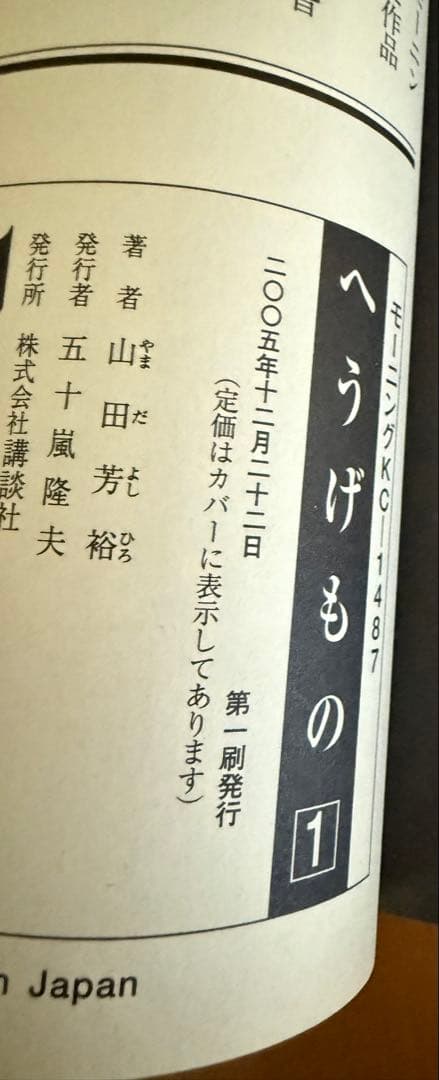 モーニン
作品
モーニングKC-1487
へうげもの 1
二〇〇五年十二月二十二日 第一刷発行
(定価はカバーに表示してあります)
著者 山田芳裕
やまだよしひろ
発行者 五十嵐隆夫
発行所 株式会社講談社
Japan